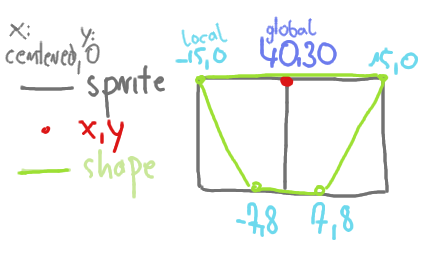 x: y:
centered, 0
sprite
x,y
shape
local
-15,0
global
40,30
15,0
-7,8
7,8